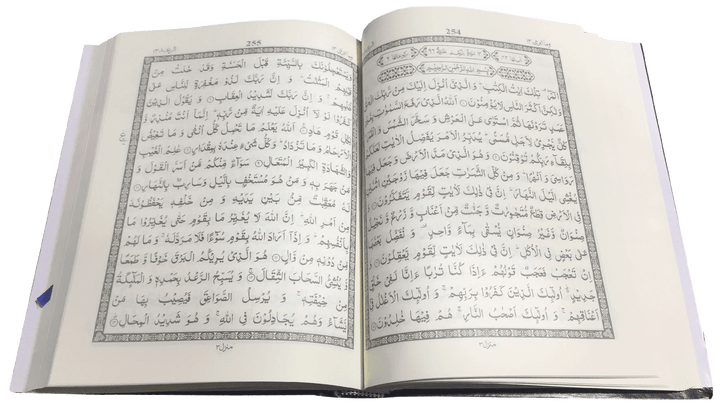 254
بِسْمِ اللّٰهِ الرَّحْمٰنِ الرَّحِيْمِ
الٓمّٓرٰ ۚ تِلْكَ اٰيٰتُ الْكِتٰبِ ؕ وَ الَّذِيْۤ اُنْزِلَ اِلَيْكَ مِنْ رَّبِّكَ الْحَقُّ
وَلٰكِنَّ اَكْثَرَ النَّاسِ لَا يُؤْمِنُوْنَ ۝ اَللّٰهُ الَّذِيْ رَفَعَ السَّمٰوٰتِ بِغَيْرِ
عَمَدٍ تَرَوْنَهَا ثُمَّ اسْتَوٰى عَلَى الْعَرْشِ وَ سَخَّرَ الشَّمْسَ وَ الْقَمَرَ ؕ
كُلٌّ يَّجْرِيْ لِاَجَلٍ مُّسَمًّى ؕ يُدَبِّرُ الْاَمْرَ يُفَصِّلُ الْاٰيٰتِ لَعَلَّكُمْ
بِلِقَآءِ رَبِّكُمْ تُوْقِنُوْنَ ۝ وَ هُوَ الَّذِيْ مَدَّ الْاَرْضَ وَ جَعَلَ فِيْهَا
رَوَاسِيَ وَ اَنْهٰرًا ؕ وَ مِنْ كُلِّ الثَّمَرٰتِ جَعَلَ فِيْهَا زَوْجَيْنِ اثْنَيْنِ
يُغْشِي الَّيْلَ النَّهَارَ ؕ اِنَّ فِيْ ذٰلِكَ لَاٰيٰتٍ لِّقَوْمٍ يَّتَفَكَّرُوْنَ ۝ وَ
فِي الْاَرْضِ قِطَعٌ مُّتَجٰوِرٰتٌ وَّ جَنّٰتٌ مِّنْ اَعْنَابٍ وَّ زَرْعٌ وَّ نَخِيْلٌ
صِنْوَانٌ وَّ غَيْرُ صِنْوَانٍ يُّسْقٰى بِمَآءٍ وَّاحِدٍ ۫ وَ نُفَضِّلُ بَعْضَهَا
عَلٰى بَعْضٍ فِي الْاُكُلِ ؕ اِنَّ فِيْ ذٰلِكَ لَاٰيٰتٍ لِّقَوْمٍ يَّعْقِلُوْنَ ۝ وَ
اِنْ تَعْجَبْ فَعَجَبٌ قَوْلُهُمْ ءَاِذَا كُنَّا تُرٰبًا ءَاِنَّا لَفِيْ خَلْقٍ
جَدِيْدٍ ؕ۬ اُولٰٓئِكَ الَّذِيْنَ كَفَرُوْا بِرَبِّهِمْ ۚ وَ اُولٰٓئِكَ الْاَغْلٰلُ فِيْۤ
اَعْنَاقِهِمْ ۚ وَ اُولٰٓئِكَ اَصْحٰبُ النَّارِ ۚ هُمْ فِيْهَا خٰلِدُوْنَ ۝
منزل ٣
255
وَ يَسْتَعْجِلُوْنَكَ بِالسَّيِّئَةِ قَبْلَ الْحَسَنَةِ وَ قَدْ خَلَتْ مِنْ
قَبْلِهِمُ الْمَثُلٰتُ ؕ وَ اِنَّ رَبَّكَ لَذُوْ مَغْفِرَةٍ لِّلنَّاسِ عَلٰى
ظُلْمِهِمْ ۚ وَ اِنَّ رَبَّكَ لَشَدِيْدُ الْعِقَابِ ۝ وَ يَقُوْلُ الَّذِيْنَ
كَفَرُوْا لَوْ لَاۤ اُنْزِلَ عَلَيْهِ اٰيَةٌ مِّنْ رَّبِّهٖ ؕ اِنَّمَاۤ اَنْتَ مُنْذِرٌ وَّ
لِكُلِّ قَوْمٍ هَادٍ ۝ اَللّٰهُ يَعْلَمُ مَا تَحْمِلُ كُلُّ اُنْثٰى وَ مَا تَغِيْضُ
الْاَرْحَامُ وَ مَا تَزْدَادُ ؕ وَ كُلُّ شَيْءٍ عِنْدَهٗ بِمِقْدَارٍ ۝ عٰلِمُ الْغَيْبِ
وَ الشَّهَادَةِ الْكَبِيْرُ الْمُتَعَالِ ۝ سَوَآءٌ مِّنْكُمْ مَّنْ اَسَرَّ الْقَوْلَ وَ
مَنْ جَهَرَ بِهٖ وَ مَنْ هُوَ مُسْتَخْفٍۭ بِالَّيْلِ وَ سَارِبٌۢ بِالنَّهَارِ ۝
لَهٗ مُعَقِّبٰتٌ مِّنْۢ بَيْنِ يَدَيْهِ وَ مِنْ خَلْفِهٖ يَحْفَظُوْنَهٗ
مِنْ اَمْرِ اللّٰهِ ؕ اِنَّ اللّٰهَ لَا يُغَيِّرُ مَا بِقَوْمٍ حَتّٰى يُغَيِّرُوْا مَا
بِاَنْفُسِهِمْ ؕ وَ اِذَاۤ اَرَادَ اللّٰهُ بِقَوْمٍ سُوْٓءًا فَلَا مَرَدَّ لَهٗ ۚ وَ مَا لَهُمْ
مِّنْ دُوْنِهٖ مِنْ وَّالٍ ۝ هُوَ الَّذِيْ يُرِيْكُمُ الْبَرْقَ خَوْفًا وَّ طَمَعًا
وَّ يُنْشِئُ السَّحَابَ الثِّقَالَ ۝ وَ يُسَبِّحُ الرَّعْدُ بِحَمْدِهٖ وَ الْمَلٰٓئِكَةُ
مِنْ خِيْفَتِهٖ ۚ وَ يُرْسِلُ الصَّوَاعِقَ فَيُصِيْبُ بِهَا مَنْ
يَّشَآءُ وَ هُمْ يُجَادِلُوْنَ فِي اللّٰهِ ۚ وَ هُوَ شَدِيْدُ الْمِحَالِ ۝
منزل ٣